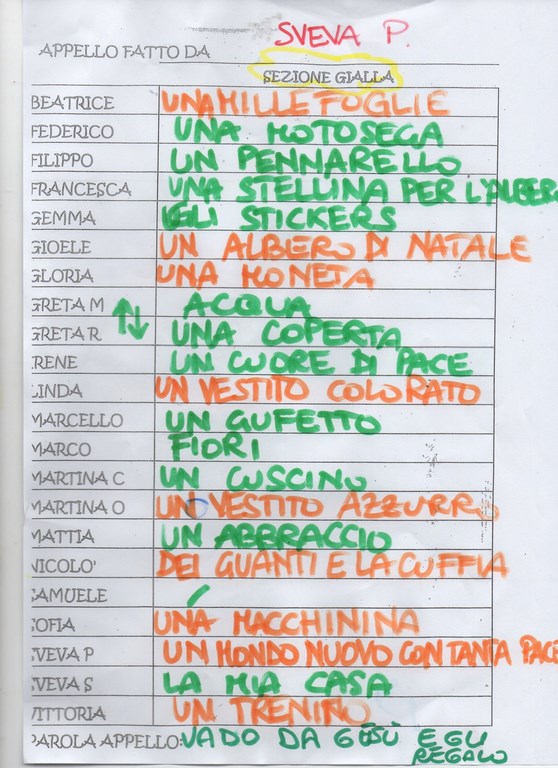 APPELLO FATTO DA SVEVA P.
SEZIONE GIALLA
BEATRICE UNA MILLEFOGLIE
FEDERICO UNA MOTOSEGA
FILIPPO UN PENNARELLO
FRANCESCA UNA STELLINA PER L'ALBER
GEMMA GLI STICKERS
GIOELE UN ALBERO DI NATALE
GLORIA UNA MONETA
GRETA M ACQUA
GRETA R UNA COPERTA
IRENE UN CUORE DI PACE
LINDA UN VESTITO COLORATO
MARCELLO UN GUFETTO
MARCO FIORI
MARTINA C UN CUSCINO
MARTINA O UN VESTITO AZZURRO
MATTIA UN ABBRACCIO
NICOLO' DEI GUANTI E LA CUFFIA
SAMUELE
SOFIA UNA MACCHININA
SVEVA P UN MONDO NUOVO CON TANTA PACE
SVEVA S LA MIA CASA
VITTORIA UN TRENINO
PAROLA APPELLO: VADO DA GESÙ E GLI
REGALO